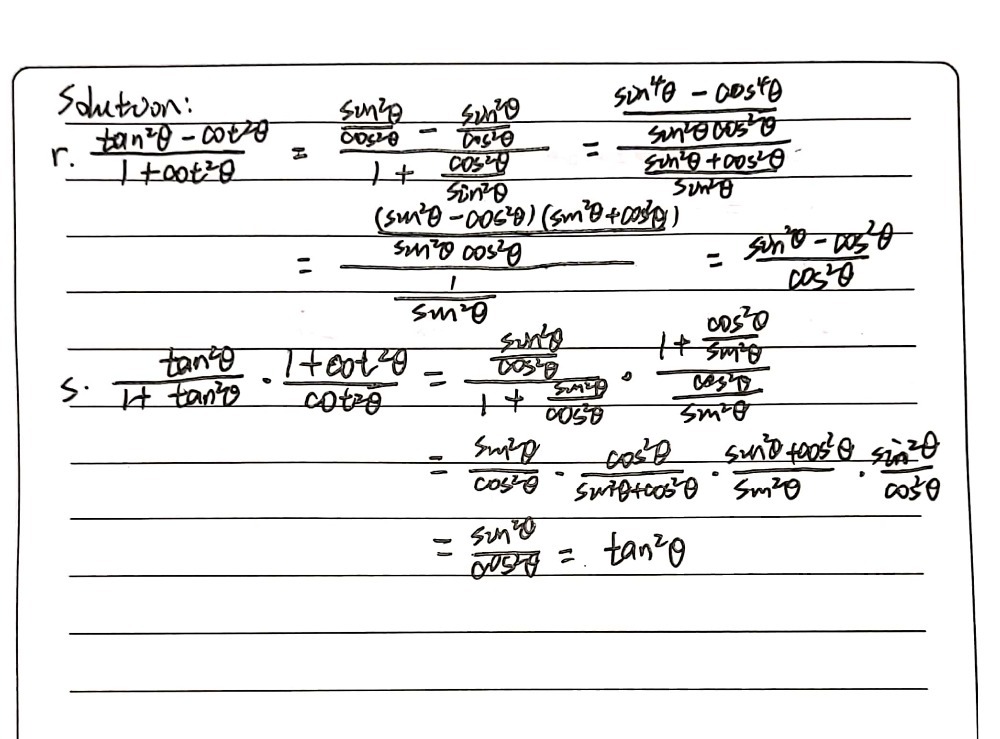 Solution:
r. \frac{tan²θ - cot²θ}{1 + cot²θ} = \frac{\frac{sin²θ}{cos²θ} - \frac{sin²θ}{cos²θ}}{1 + \frac{cos²θ}{sin²θ}} = \frac{\frac{sin⁴θ - cos⁴θ}{sin²θ cos²θ}}{\frac{sin²θ + cos²θ}{sin²θ}}
= \frac{\frac{(sin²θ - cos²θ)(sin²θ + cos²θ)}{sin²θ cos²θ}}{\frac{1}{sin²θ}} = \frac{sin²θ - cos²θ}{cos²θ}
s. \frac{tan²θ}{1 + tan²θ} · \frac{1 + cot²θ}{cot²θ} = \frac{\frac{sin²θ}{cos²θ}}{1 + \frac{sin²θ}{cos²θ}} · \frac{1 + \frac{cos²θ}{sin²θ}}{\frac{cos²θ}{sin²θ}}
= \frac{sin²θ}{cos²θ} · \frac{cos²θ}{sin²θ + cos²θ} · \frac{sin²θ + cos²θ}{sin²θ} · \frac{sin²θ}{cos²θ}
= \frac{sin²θ}{cos²θ} = tan²θ